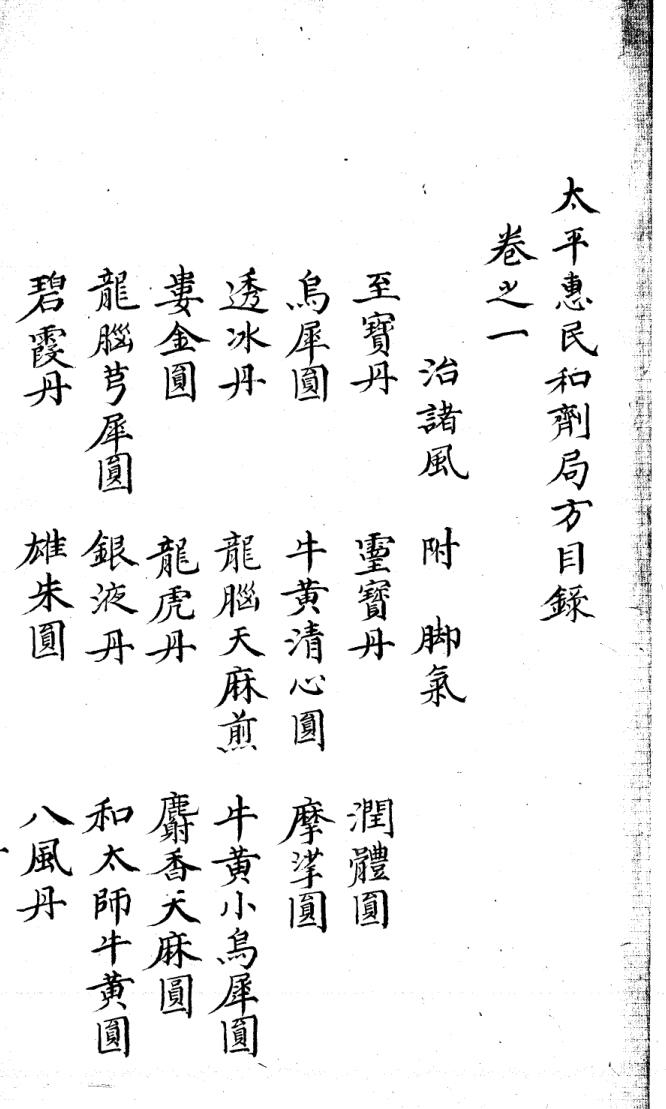 太平惠民和劑局方目錄
卷之一
治諸風 附 脚氣
至寶丹 靈寶丹 潤體圓
烏犀圓 牛黄清心圓 摩挲圓
透冰丹 龍腦天麻煎 牛黄小烏犀圓
婁金圓 龍虎丹 麝香天麻圓
龍腦芎犀圓 銀液丹 和太師牛黄圓
碧霞丹 雄朱圓 八風丹